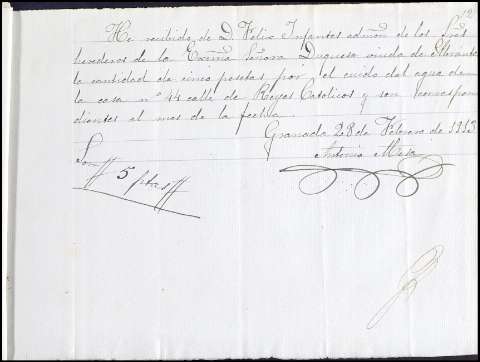 12
He recibido de D. Felix Infantes admōn de los Sres
herederos de la Excma Señora Duquesa viuda de
la cantidad de cinco pesetas por el cuido del agua de
la casa nº 44 calle de Reyes Catolicos y son correspon
dientes al mes de la fecha.
Granada 28 de Febrero de 1913
Antonio Mesa
Son 5 ptas